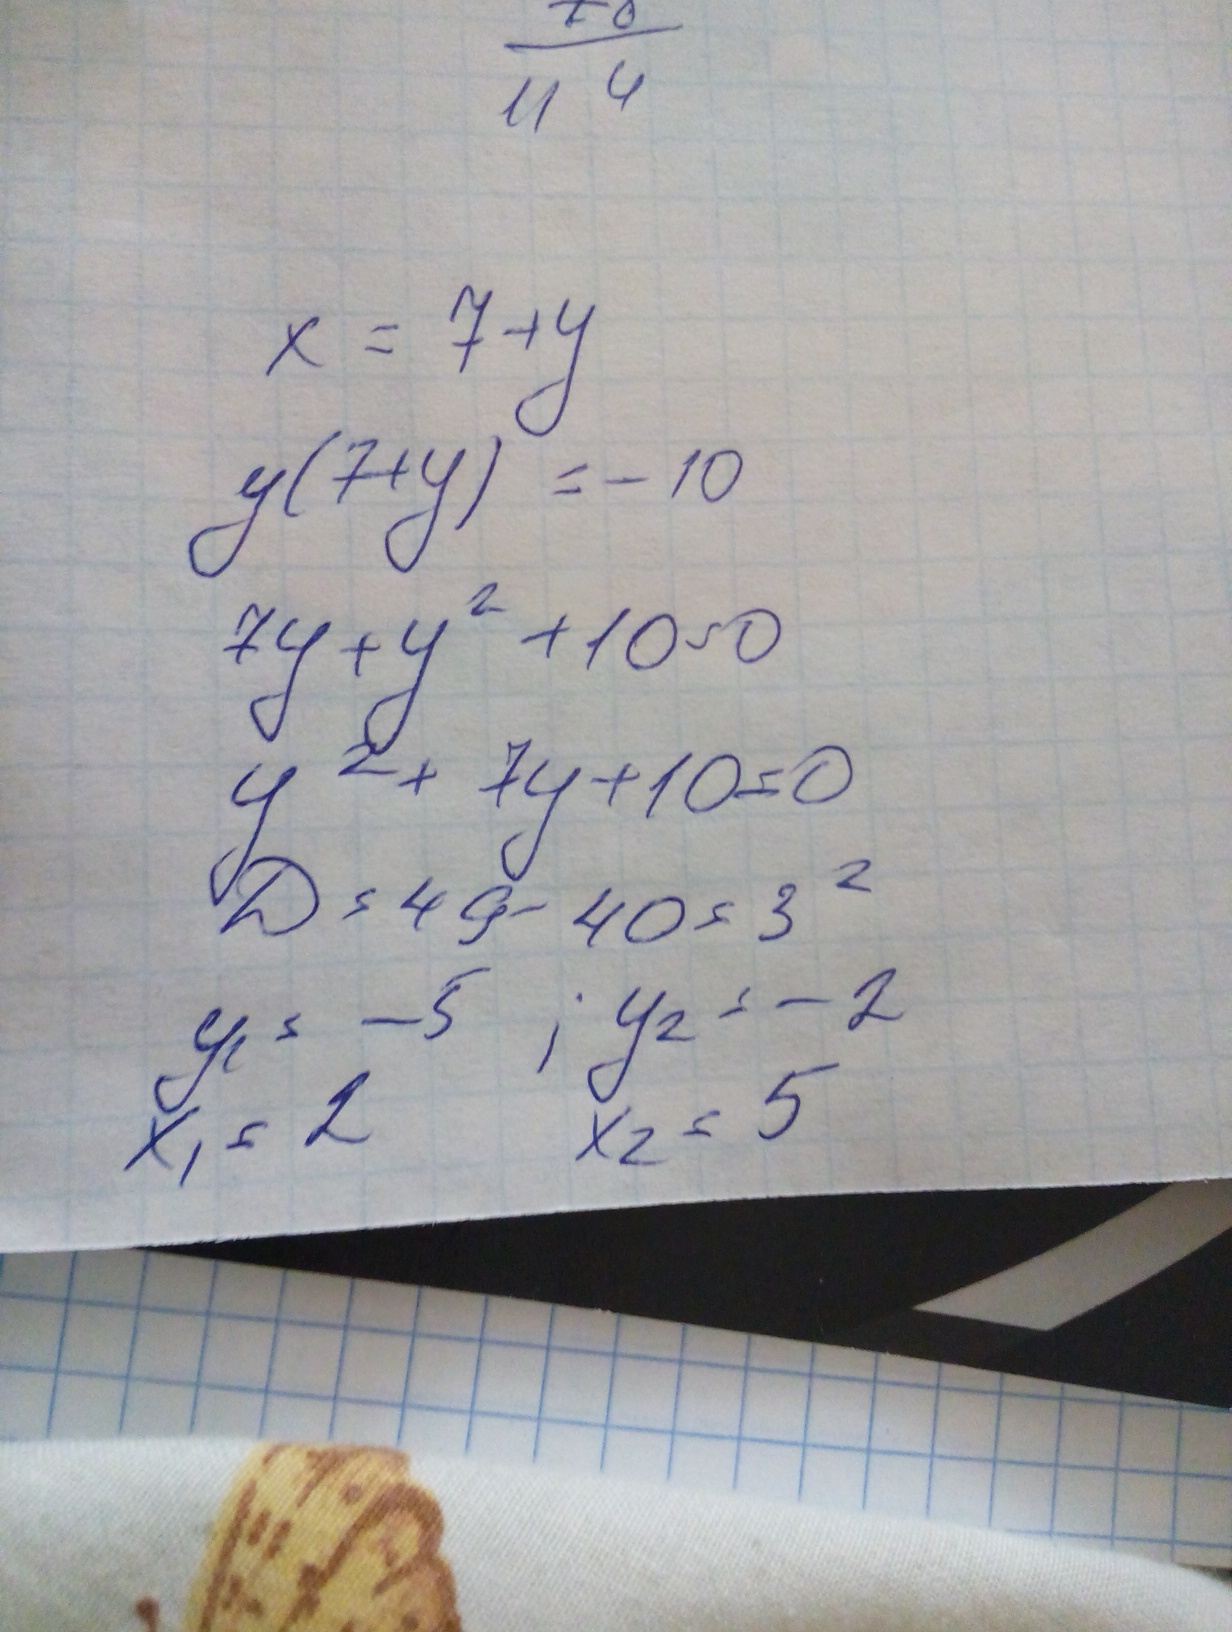 114
x = 7+y
y(7+y) = -10
7y+y²+10=0
y²+ 7y+10=0
D=49-40=3²
y₁= -5 ; y₂=-2
x₁= 2 x₂= 5